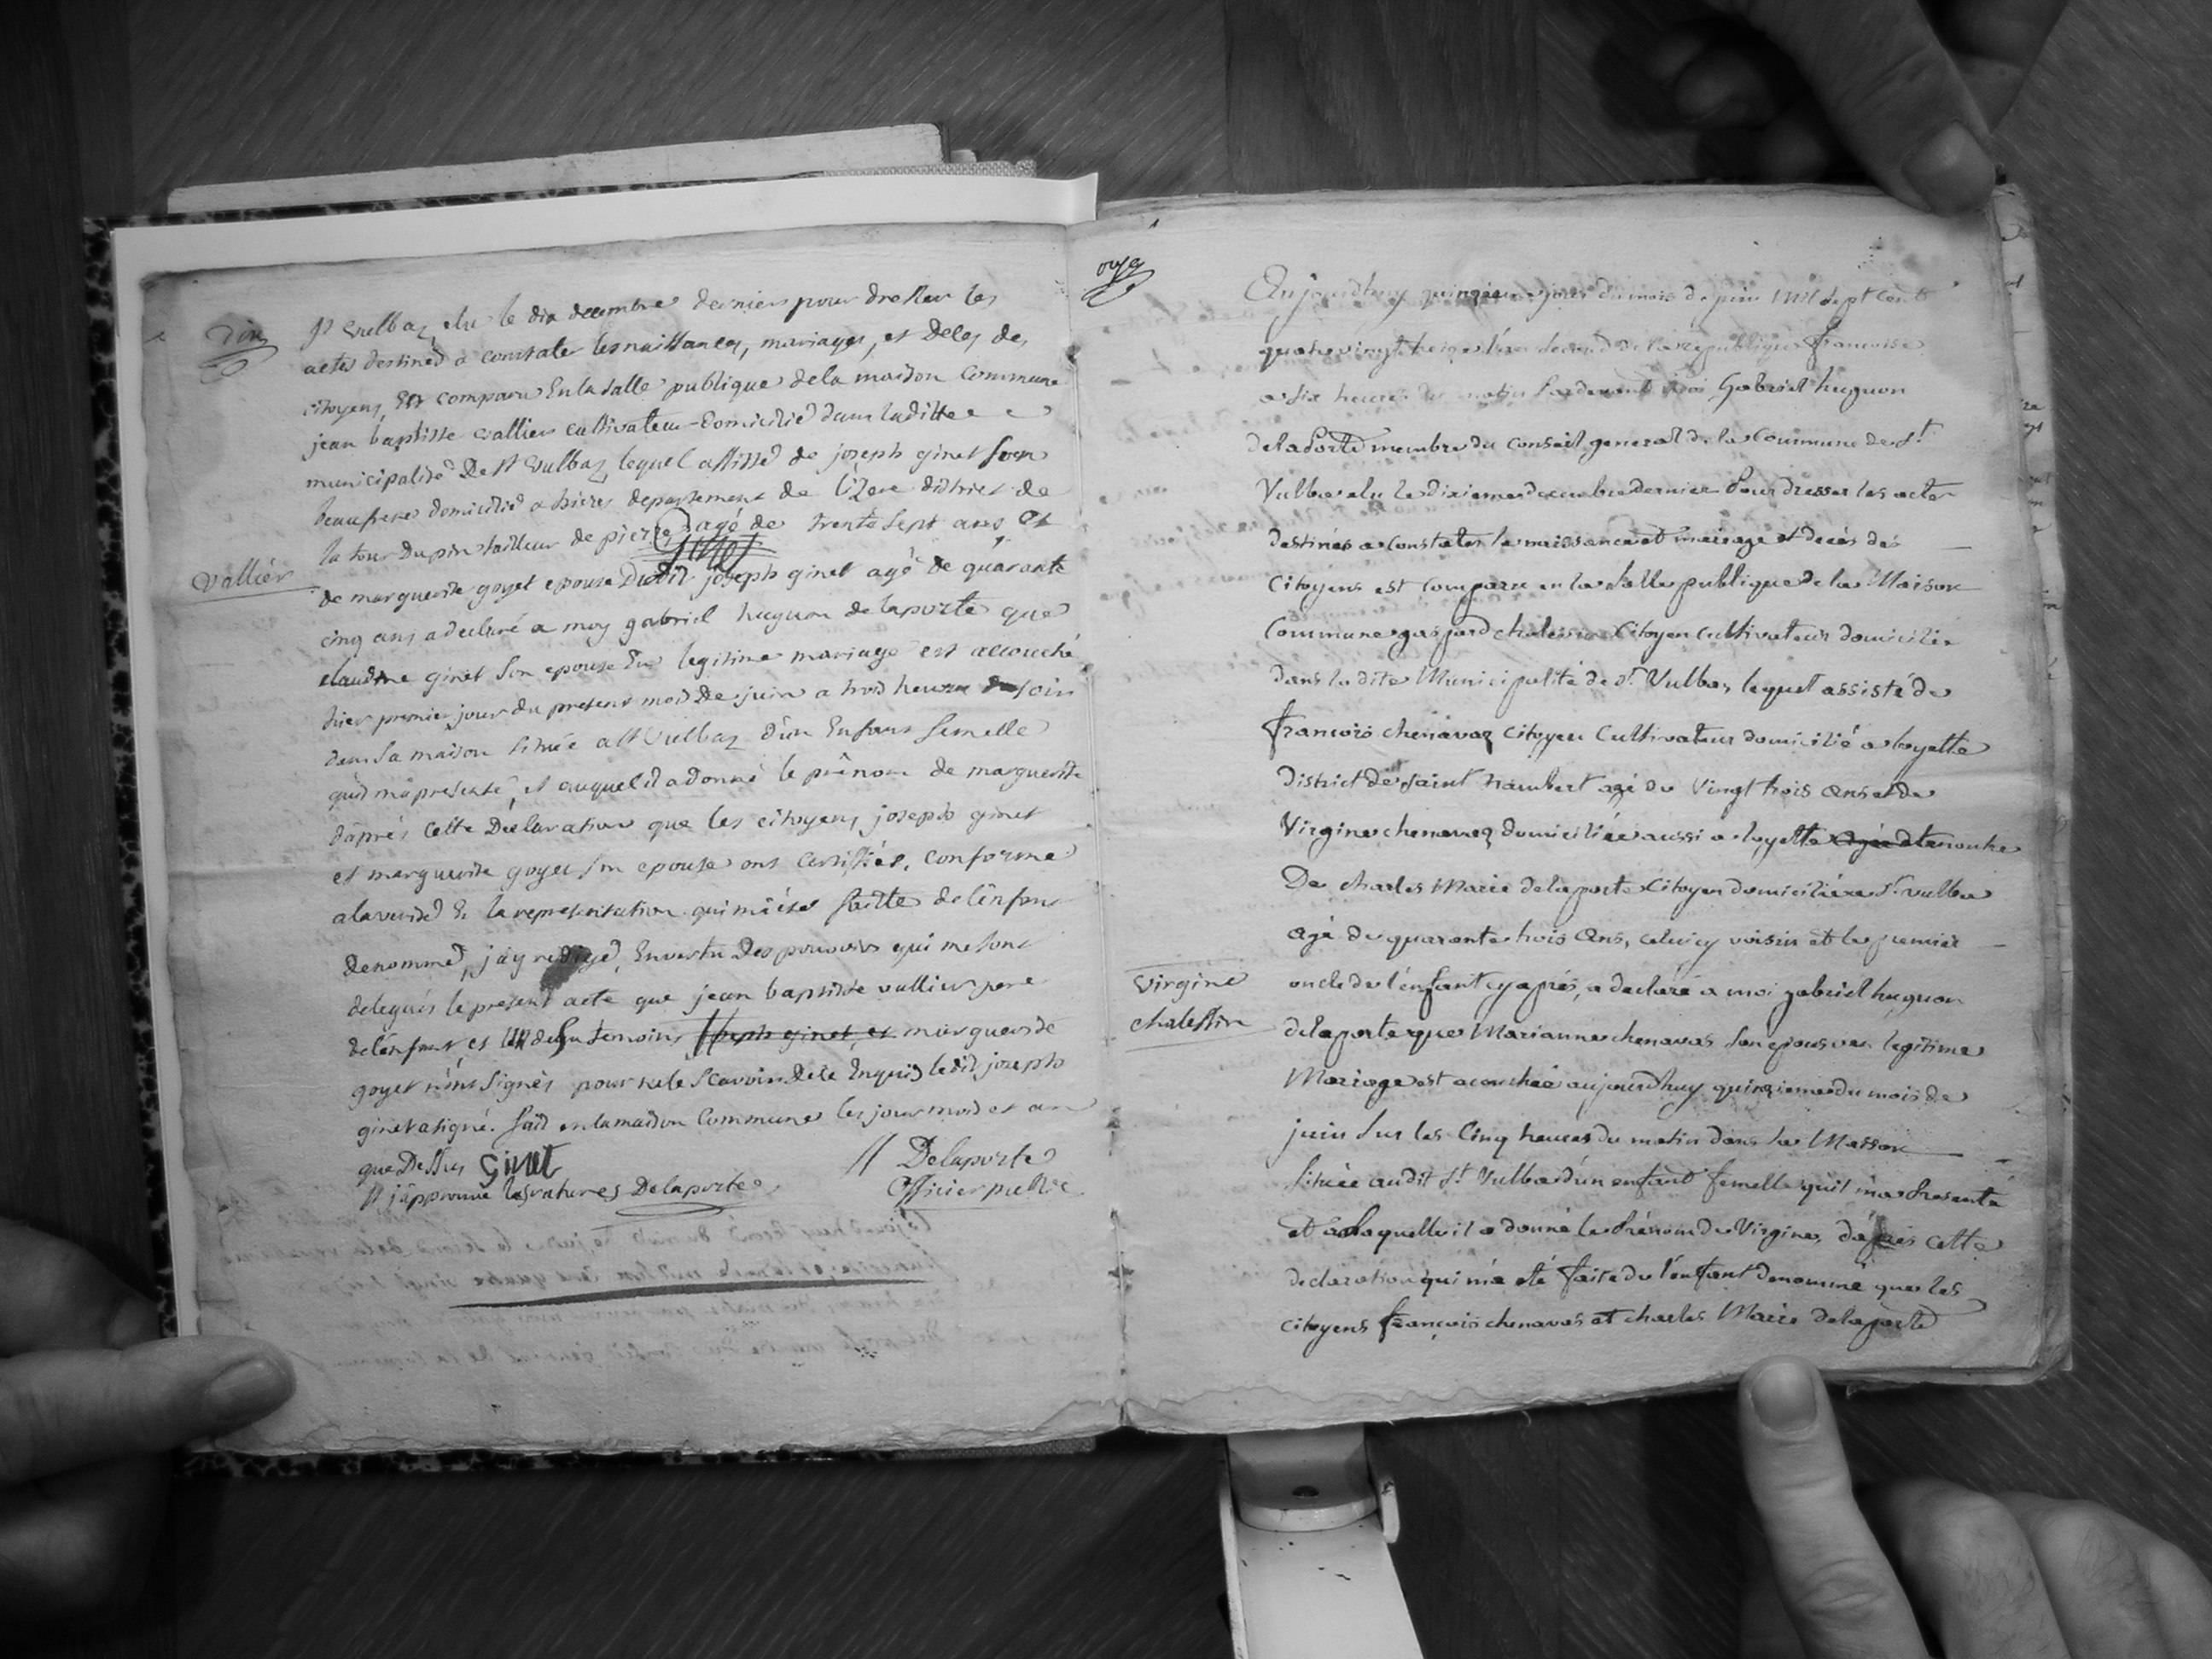 dix
St Vulbaz, elu le dix decembre dernier pour dresser les
actes destined a constater les naissances, mariages, et Deces des
citoyens, Est comparu En la salle publique de la maison Commune
jean baptiste vallier cultivateur Domicilié dans laditte
municipalité De St Vulbaz lequel assisted de joseph ginet son
beaufrere domicilié a hieres departement de l'izere district de
la tour Dupin tailleur de pierre agé de trente sept ans et
Vallier
de marguerite goyet epouse Dudit joseph ginet agé de quarante
cinq ans a declaré a moy gabriel huguon de laporte que
claudine ginet son epouse En legitime mariage est accouché
hier premier jour du present mois De juin a trois heures du soir
dans sa maison située a St Vulbaz d'un Enfans femelle
qu'il m'a presenté, et auquel il a donné le prénom de marguerite
d'aprés cette Declaration que les citoyens joseph ginet
et marguerite goyet son epouse ont certifiés, conforme
a la verité Et la representation qui m'a été faitte de l'enfant
denommé, j'ay redigé, En vertu Des pouvoirs qui me sont
delegués le present acte que jean baptiste vallier pere
de l'enfant, et un de ses temoins joseph ginet, et marguerite
goyet n'ont signés pour ne le Scavoir De ce Enquis ledit joseph
ginet a signé. fait en la maison Commune les jour mois et an
que Dessus Ginet // Delaporte
// j'approuve les ratures Delaporte Officier public
onze
Aujourdhuy quinzieme jour du mois de juin mil sept Cent
quatre vingt treize l'an second de la republique francoise
a dix heures du matin Pardevant moi Gabriel huguon
de laPorte membre du Conseil general de la Commune de St
Vulbas elu le dixieme decembre dernier Pour dresser les actes
destinés a Constater les naissance et mariage et decés des
Citoyens est Comparu en la Salle publique de la Maison
Commune gaspard Citoyen Cultivateur domicilié
dans la dite Municipalité de St Vulbas lequel assisté de
francois chenavaz Citoyen Cultivateur domicilié a loyette
district de saint rambert agé de Vingt trois ans et de
Virgine chenavaz domiciliée aussi a loyette
De charles Marie delaporte Citoyen domicilié a St vulbas
agé de quarante trois ans, celuicy voisin et le premier
Virgine
oncle de l'enfant cy aprés, a declaré a moi gabriel huguon
chalessin
delaporte que Marianne chenavas son epouse en legitime
Mariage est acouchée aujourdhuy quinzieme du mois de
juin Sur les Cinq heures du matin dans sa Maison
Située audit St Vulbas d'un enfant femelle qu'il m'a Presenté
et a laquelle il a donné le Prénom de Virgine, d'aprés cette
declaration qui m'a eté faite de l'enfant denommé que les
citoyens françois chenavas et charles Marie delaporte